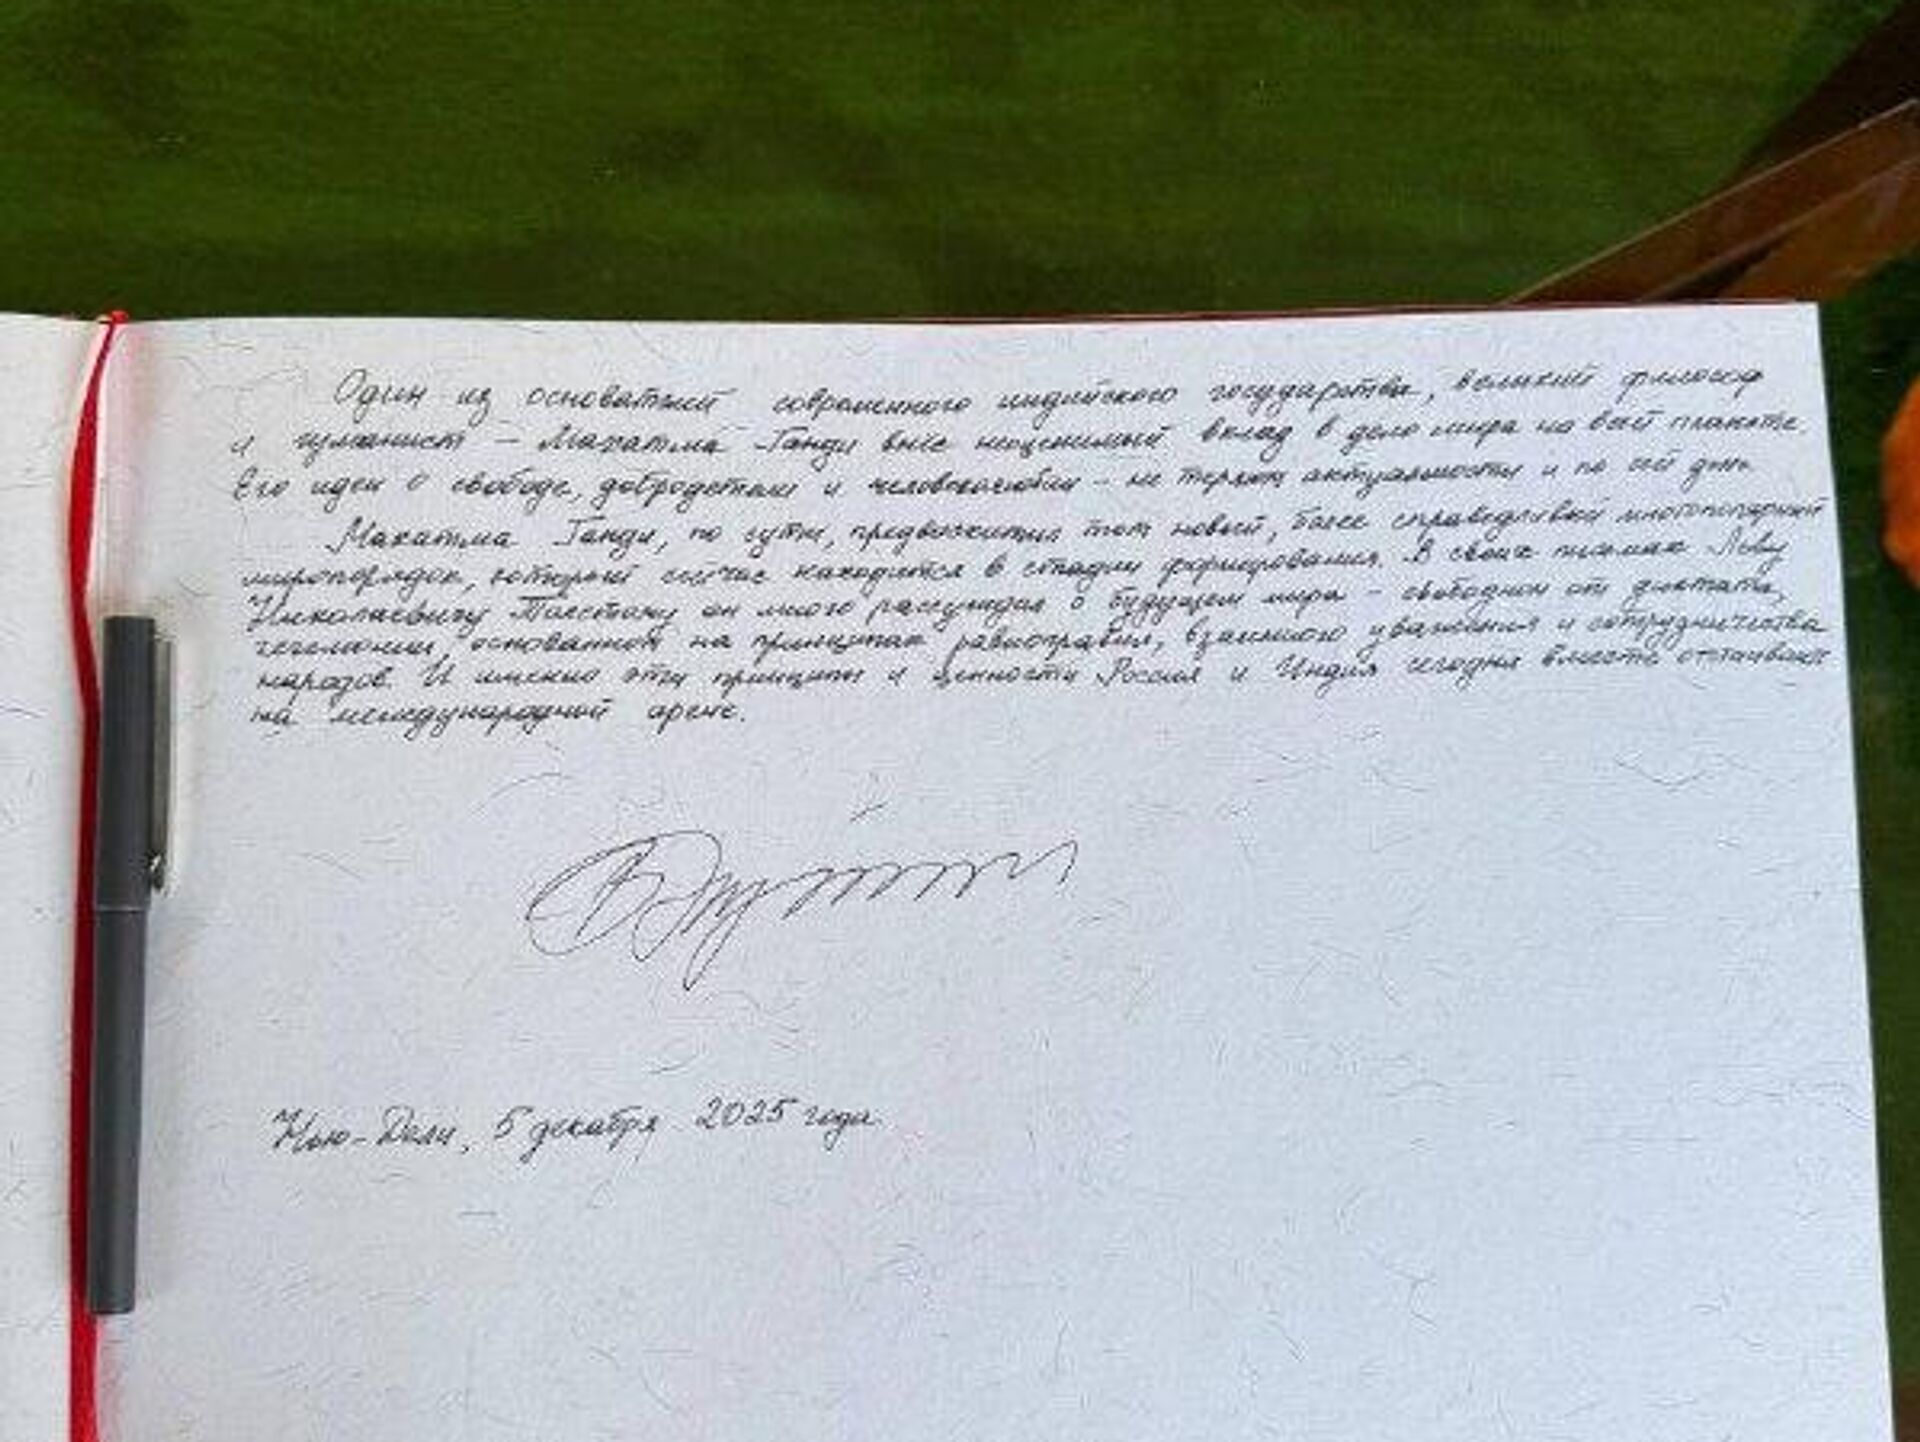 Один из основателей современного индийского государства, великий философ
и гуманист – Махатма Ганди внёс неоценимый вклад в дело мира на всей планете.
Его идеи о свободе, добродетели и человеколюбии – не теряют актуальности и по сей день.
Махатма Ганди, по сути, предвосхитил тот новый, более справедливый многополярный
миропорядок, который сейчас находится в стадии формирования. В своих письмах Льву
Николаевичу Толстому он много рассуждал о будущем мира – свободном от диктата,
гегемонии, основанном на принципах равноправия, взаимного уважения и сотрудничества
народов. И именно эти принципы и ценности Россия и Индия сегодня вместе отстаивают
на международной арене.
Нью-Дели, 5 декабря 2025 года